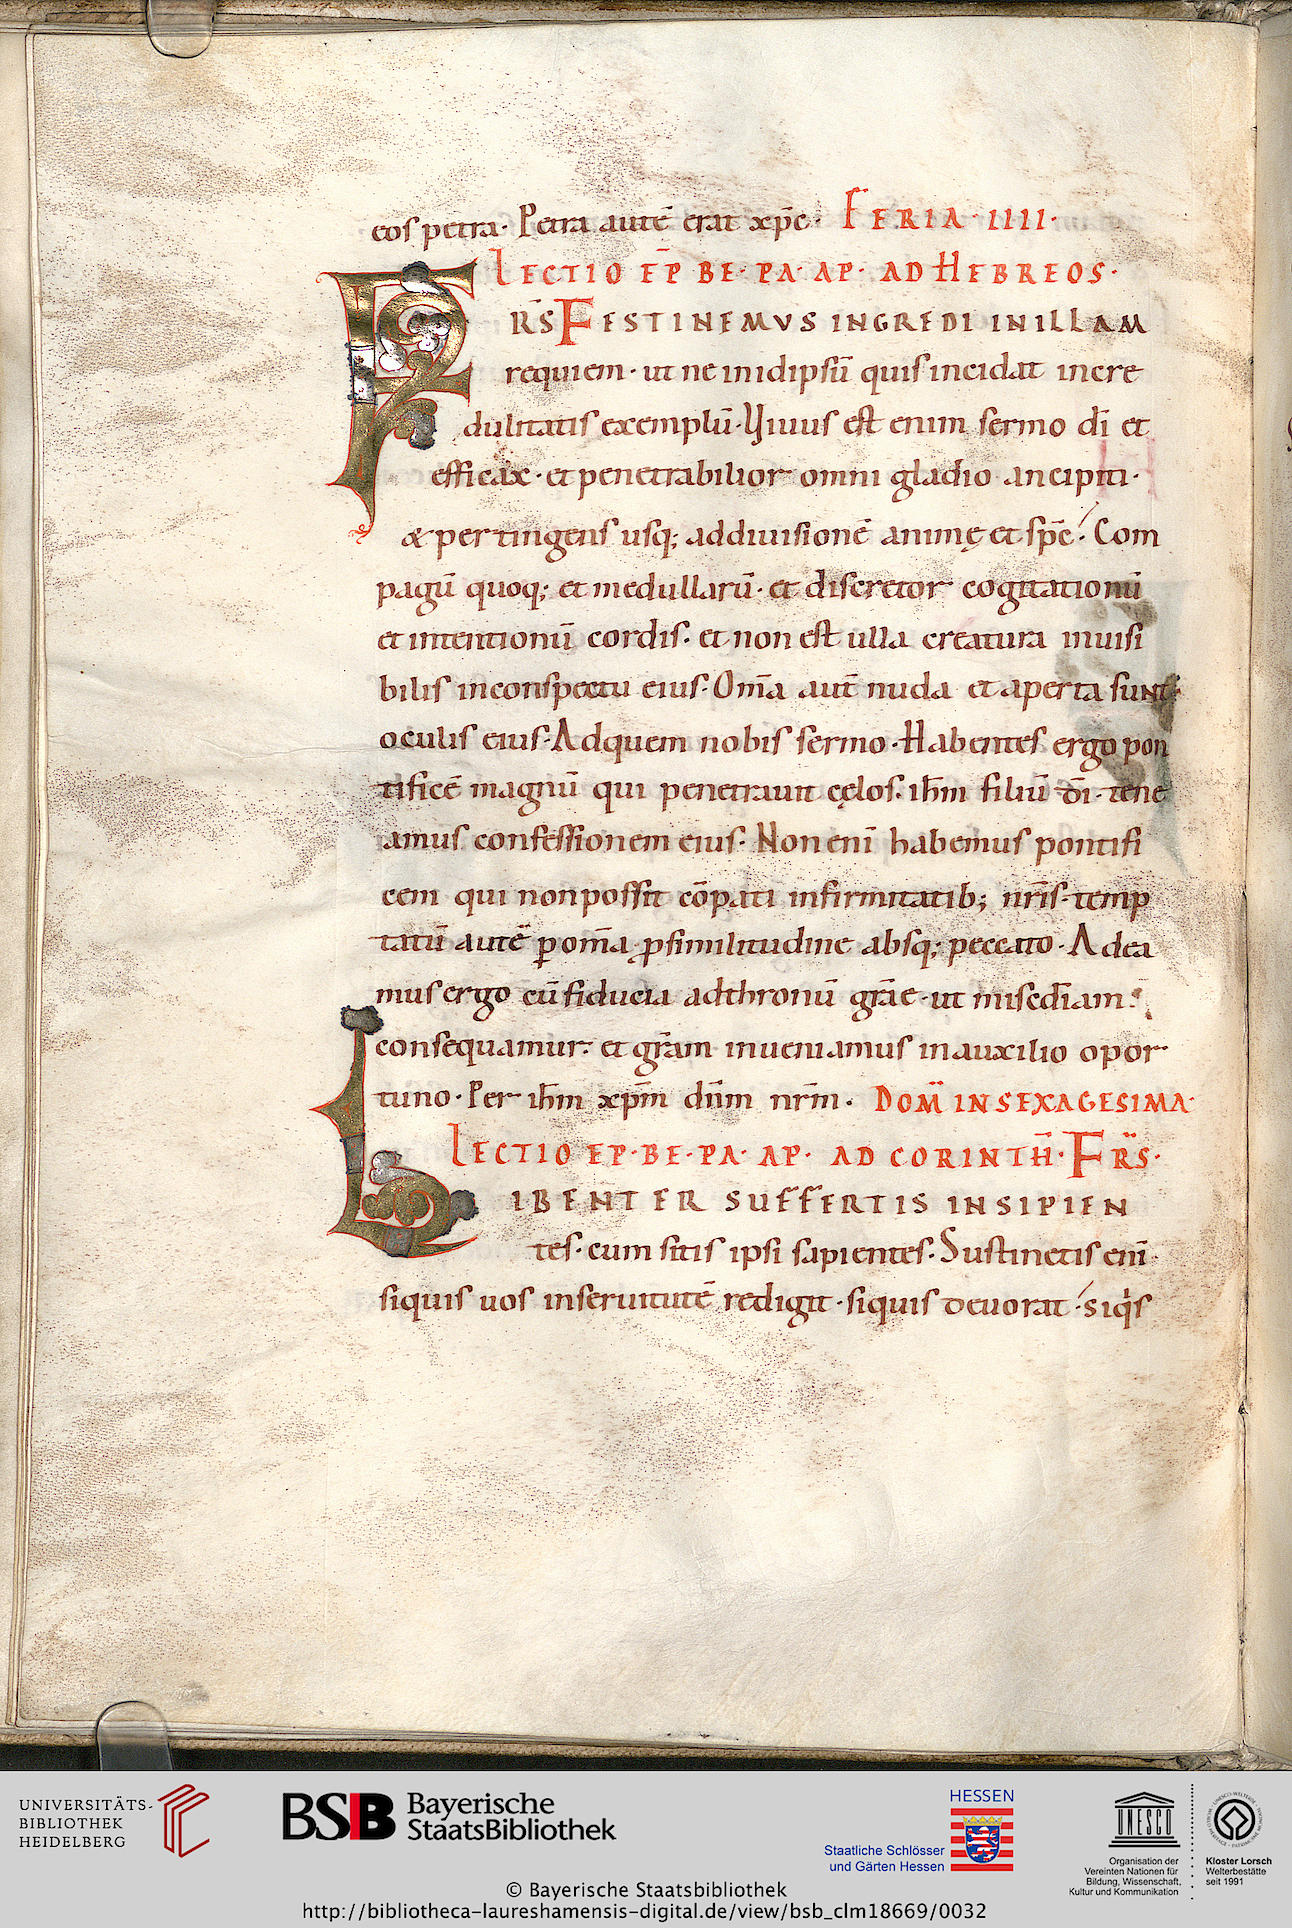 eos petra. Petra autē erat xp̄c. FERIA. IIII.
LECTIO EP̄ BE. PA. AP. AD HEBREOS.
F RS̄ FESTINEMVS INGREDI IN ILLAM
requiem. ut ne in idipsū quis incidat incre
dulitatis exemplū. Viuus est enim sermo dī et
efficax. et penetrabilior omni gladio ancipiti.
& pertingens usq; ad diuisionē animę et sp̄c. Com
pagū quoq; et medullarū. et discretor cogitationū
et intentionū cordis. et non est ulla creatura inuisi
bilis in conspectu eius. Om̄a aut̄ nuda et aperta sunt
oculis eius. Ad quem nobis sermo. Habentes ergo pon
tificē magnū qui penetrauit cęlos. ih̄m filiū dī. tene
amus confessionem eius. Non enī habemus pontifi
cem qui non possit cōpati infirmitatib; nr̄is. temp
tatū autē ꝑ om̄a ꝓ similitudine absq; peccato. Adea
mus ergo cū fiducia ad thronū grāe. ut misedīam
consequamur. et gr̄am inueniamus in auxilio opor
tuno. Per ih̄m xp̄m dn̄m nr̄m. DOM̄ IN SEXAGESIMA.
LECTIO EP. BE. PA. AP. AD CORINTH̄. FR̄S.
L IBENTER SUFFERTIS INSIPIEN
tes. cum sitis ipsi sapientes. Sustinetis enī.
siquis uos in seruitutē redigit. siquis deuorat. siq̇s
UNIVERSITÄTS-
BIBLIOTHEK
HEIDELBERG
BSB Bayerische
StaatsBibliothek
HESSEN
Staatliche Schlösser
und Gärten Hessen
UNESCO
Organisation der
Vereinten Nationen für
Bildung, Wissenschaft,
Kultur und Kommunikation
Kloster Lorsch
Welterbestätte
seit 1991
© Bayerische Staatsbibliothek
http://bibliotheca-laureshamensis-digital.de/view/bsb_clm18669/0032